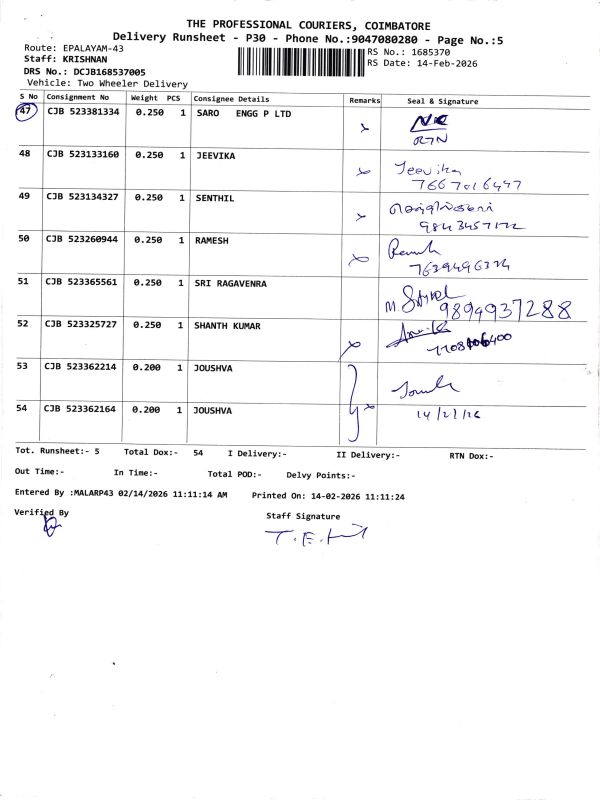 THE PROFESSIONAL COURIERS, COIMBATORE
Delivery Runsheet - P30 - Phone No.:9047080280 - Page No.:5
Route: EPALAYAM-43
RS No.: 1685370
Staff: KRISHNAN
RS Date: 14-Feb-2026
DRS No.: DCJB168537005
Vehicle: Two Wheeler Delivery
S No Consignment No Weight PCS Consignee Details Remarks Seal & Signature
47 CJB 523381334 0.250 1 SARO ENGG P LTD
RTN
48 CJB 523133160 0.250 1 JEEVIKA Jeevika
49 CJB 523134327 0.250 1 SENTHIL
50 CJB 523260944 0.250 1 RAMESH
51 CJB 523365561 0.250 1 SRI RAGAVENRA
9894937288
52 CJB 523325727 0.250 1 SHANTH KUMAR
53 CJB 523362214 0.200 1 JOUSHVA
54 CJB 523362164 0.200 1 JOUSHVA
Tot. Runsheet:- 5 Total Dox:- 54 I Delivery:- II Delivery:- RTN Dox:-
Out Time:- In Time:- Total POD:- Delvy Points:-
Entered By :MALARP43 02/14/2026 11:11:14 AM Printed On: 14-02-2026 11:11:24
Verified By Staff Signature